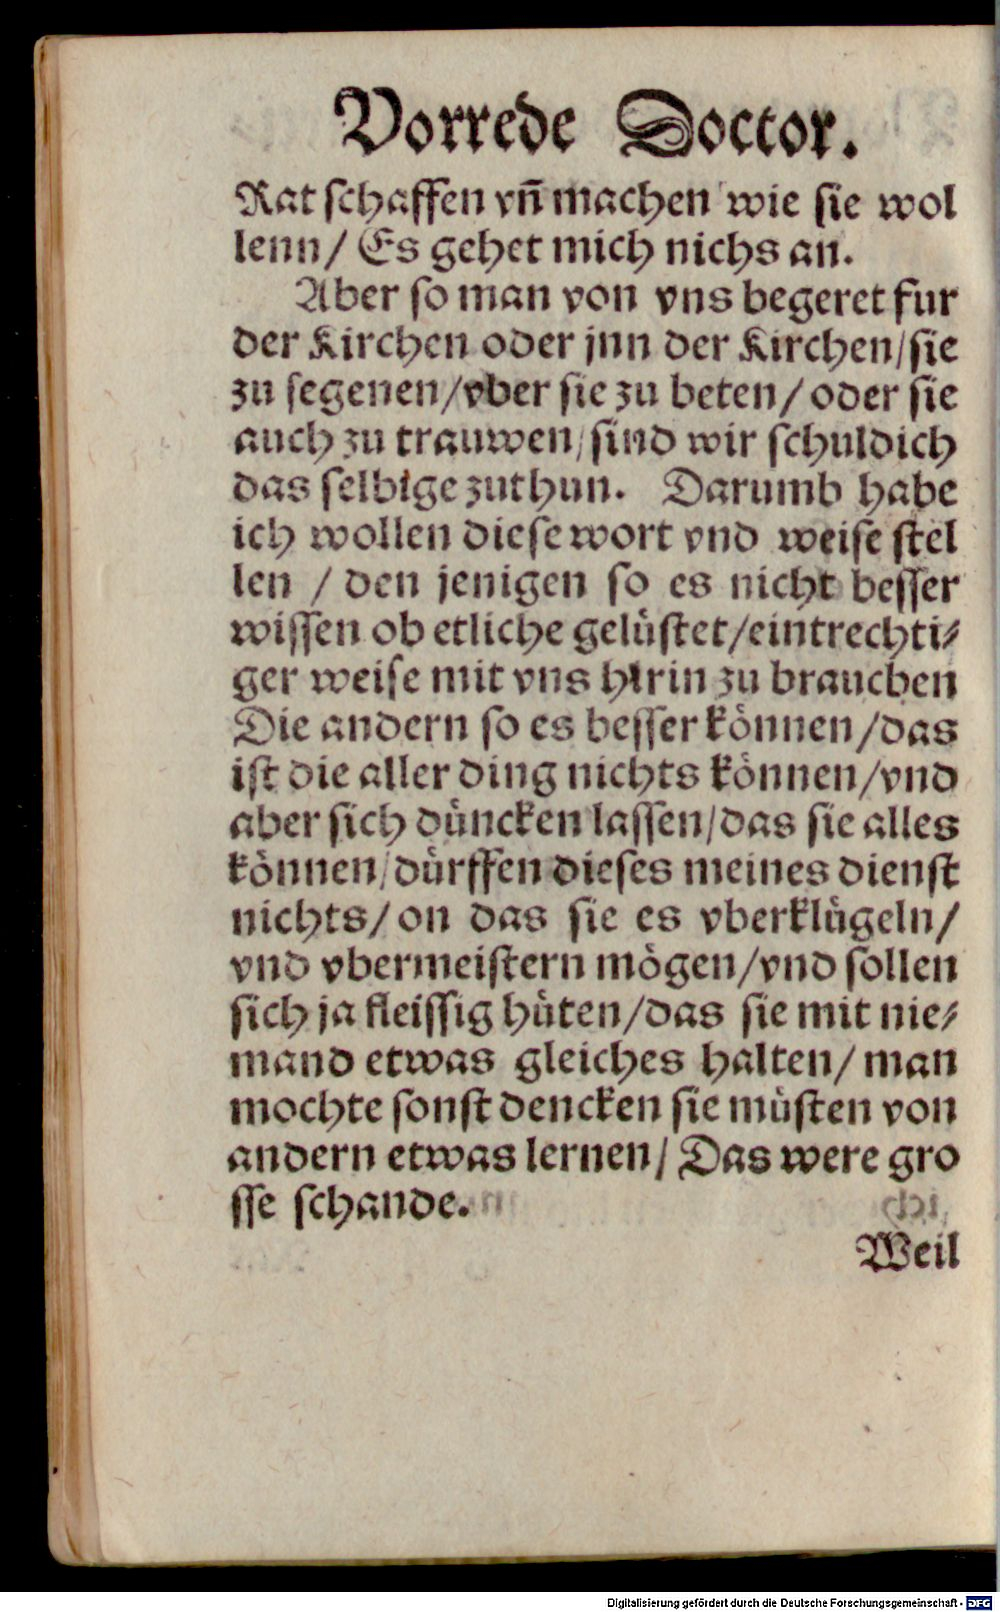 Vorrede Doctor.
Rat schaffen vn̄ machen wie sie wol
lenn / Es gehet mich nichs an.
Aber so man von vns begeret fur
der Kirchen oder jnn der Kirchen / sie
zu segenen / vber sie zu beten / oder sie
auch zu trauwen / sind wir schuldich
das selbige zuthun. Darumb habe
ich wollen diese wort vnd weise stel
len / den jenigen so es nicht besser
wissen ob etliche gelüstet / eintrechti⸗
ger weise mit vns hirin zu brauchen
Die andern so es besser können / das
ist die aller ding nichts können / vnd
aber sich düncken lassen / das sie alles
können / dürffen dieses meines dienst
nichts / on das sie es vberklügeln /
vnd vbermeistern mögen / vnd sollen
sich ja fleissig hüten / das sie mit nie⸗
mand etwas gleiches halten / man
mochte sonst dencken sie müsten von
andern etwas lernen / Das were gro
sse schande.
Weil
Digitalisierung gefördert durch die Deutsche Forschungsgemeinschaft - DFG